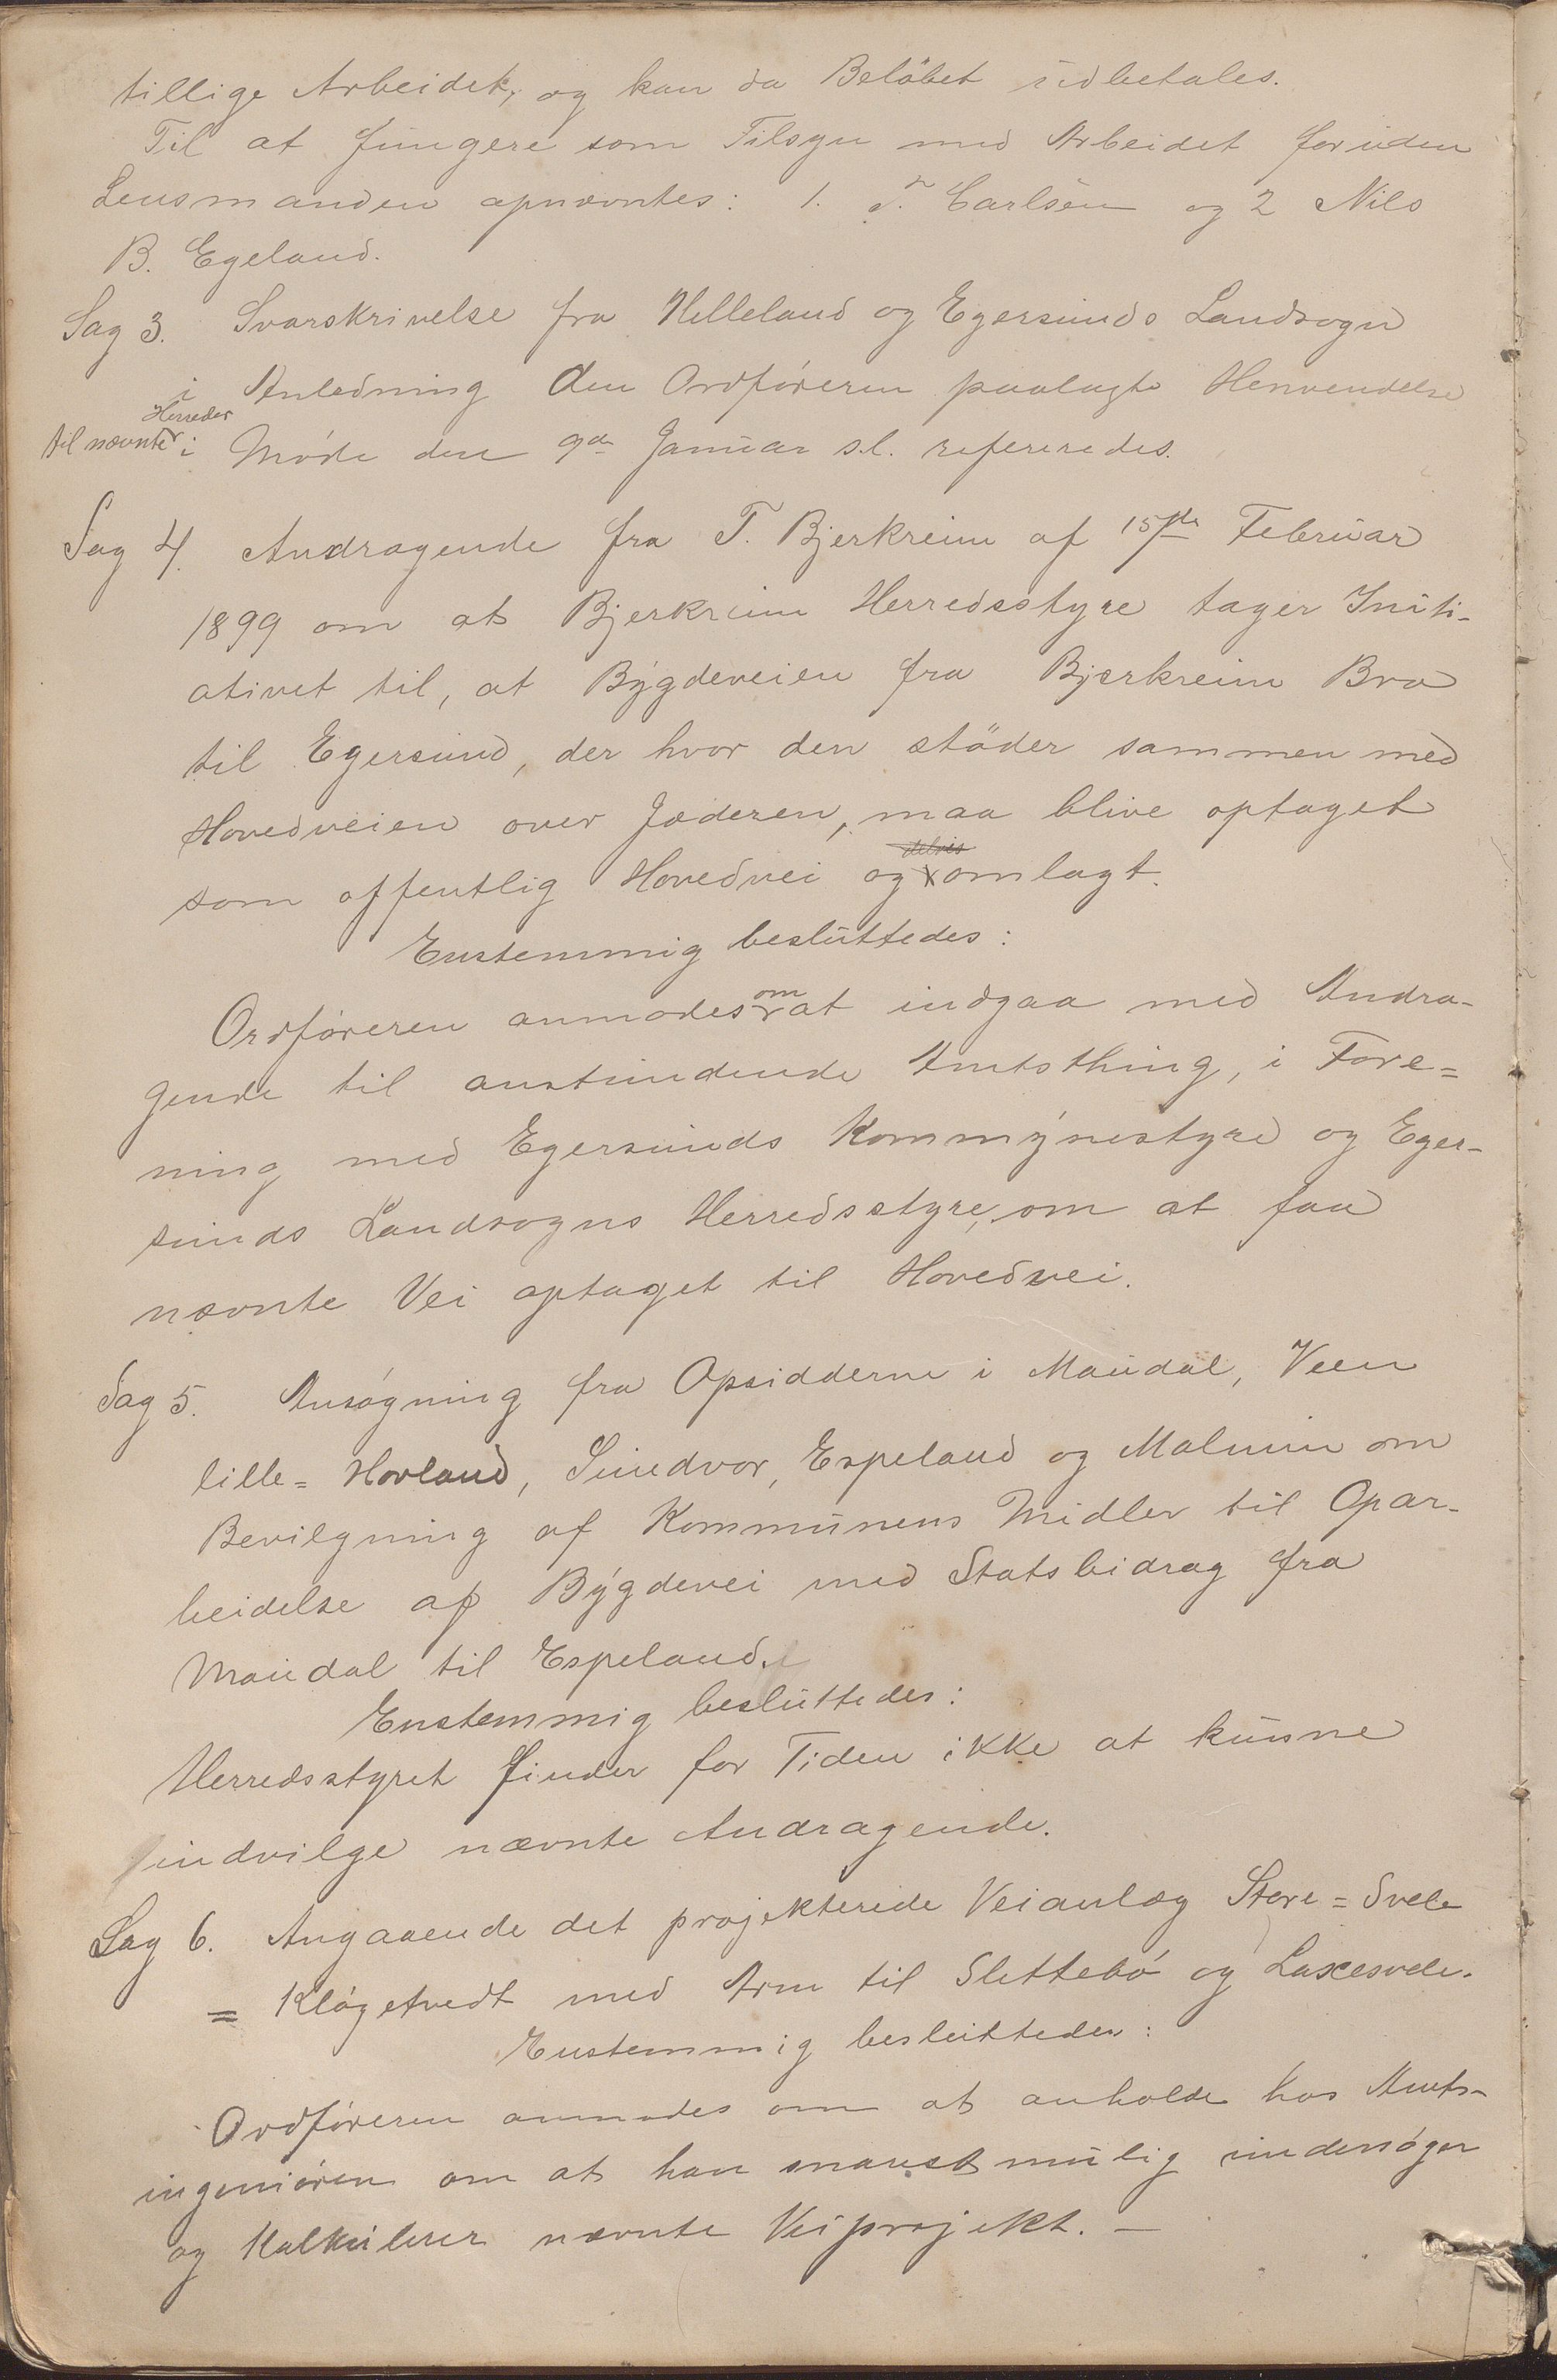 tillige Arbeidet, og kan da Beløbet udbetales.
Til at fungere som Tilsyn med Arbeidet foruden
Lensmanden opnævntes: 1. T. Carlsen og 2 Nils
B. Egeland.
Sag 3. Svarskrivelse fra Helleland og Egersunds Landsogn
i Anledning den Ordføreren paalagte Henvendelse
til nævnte Herreder i Møde den 9de Januar s.l. refereredes.
Sag 4. Andragende fra T. Bjerkreim af 15de Februar
1899 om at Bjerkreim Herredsstyre tager Initi-
ativet til, at Bygdeveien fra Bjerkreim Bro
til Egersund, der hvor den støder sammen med
Hovedveien over Jæderen, maa blive optaget
som offentlig Hovedvei og delvis omlagt.
Enstemmig besluttedes:
Ordføreren anmodes om at indgaa med Andra-
gende til anstundende Amtsthing, i Fore=
ning med Egersunds Kommunestyre og Eger-
sunds Landsogns Herredsstyre, om at faa
nævnte Vei optaget til Hovedvei.
Sag 5. Ansøgning fra Opsidderne i Maudal, Veen
lille=Hovland, Sundvor, Espeland og Malmin om
Bevilgning af Kommunens Midler til Opar-
beidelse af Bygdevei med Statsbidrag fra
Maudal til Espeland.
Enstemmig besluttedes:
Herredsstyret finder for Tiden ikke at kunne
indvilge nævnte Andragende.
Sag 6. Angaaende det projekterede Veianlæg Store=Svele
= Kløgetvedt med Arm til Slettebø og Laxesvele.
Enstemmig besluttedes:
Ordføreren anmodes om at anholde hos Amts-
ingeniøren om at han snarest mulig undersøger
og kalkulerer nævnte Veiprojekt. —